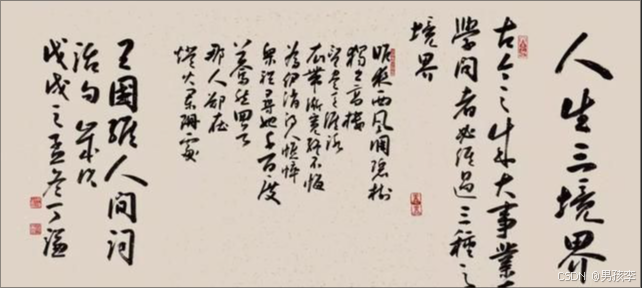 人生三境界
古今之成大事業
學問者必經過三種之
境界
昨夜西风凋碧樹
獨上高樓
望盡天涯路
衣帶漸寬終不悔
為伊消得人憔悴
眾裡尋他千百度
驀然回首
那人卻在
燈火闌珊處
王國維人間詞
話句歲次
戊戌之孟冬丁
CSDN @男孩李